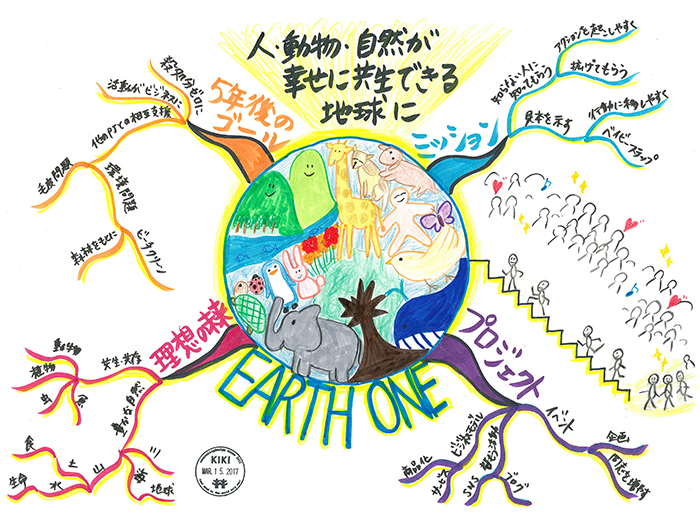 人・動物・自然が
幸せに共生できる
地球に
5年後の
ゴール
殺処分ゼロに
活動がビジネスに
他のPJTの相互支援
毛皮問題
環境問題
森林をもとに
ビーチクリーン
ミッション
知らない人に
知ってもらう
アクションを起こしやすく
拡げてもらう
見本を示す
行動に移しやすく
ベイビーステップ
理想の未来
共生・共存
動物
植物
虫
豊かな自然
山
川
海
地球
土
水
食
生命
プロジェクト
イベント
企画
同志を増やす
ビジネスモデル
商品化
サービス
SNS
ブログ
EARTH ONE
KIKI
MAR.15.2017